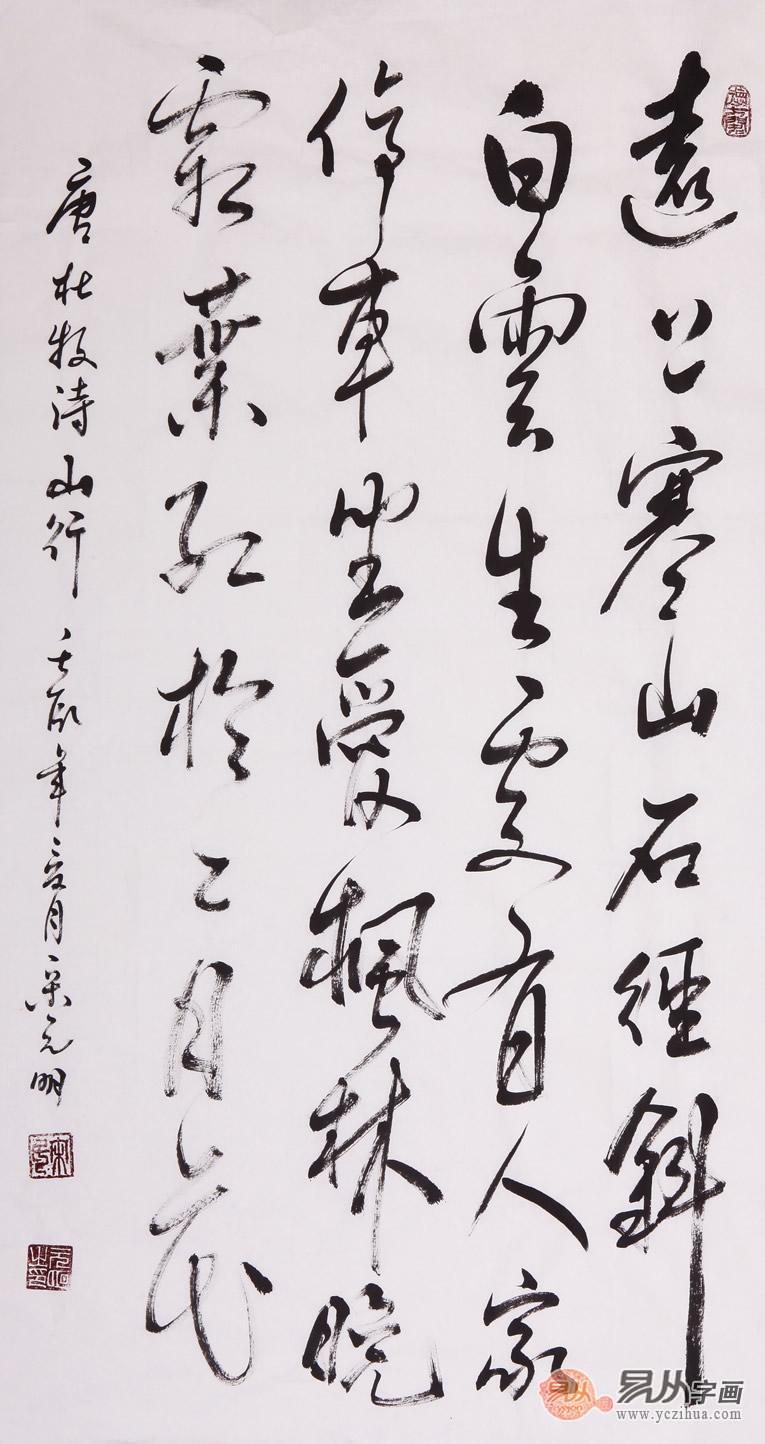 遠上寒山石徑斜
白雲生處有人家
停車坐愛楓林晚
霜葉紅於二月花
唐杜牧詩山行 壬辰年夏月宋元明
易从字画
www.yczihua.com